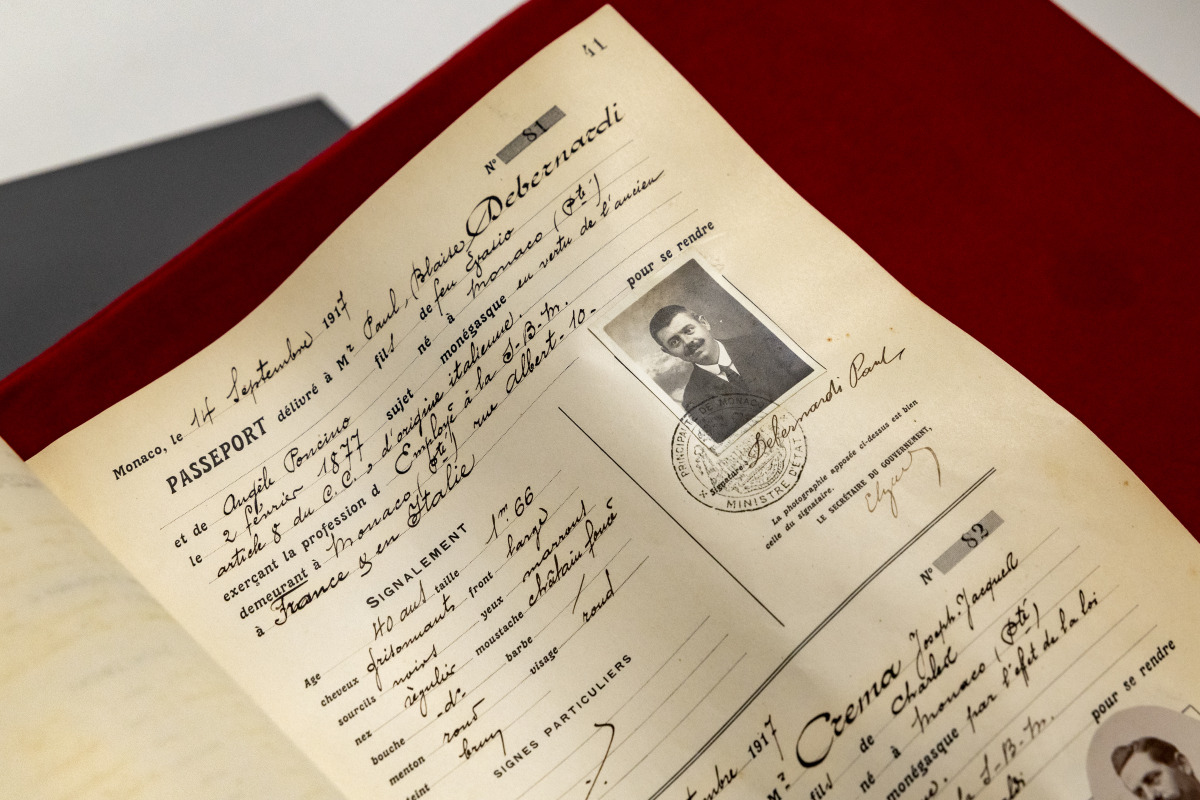 41
Nº 81
Monaco, le 14 Septembre 1917
PASSEPORT délivré à Mr Paul, Blaise Debernardi
fils de feu Evasio
et de Angèle Poncino né à Monaco (Pté)
le 2 février 1877 sujet monégasque en vertu de l'ancien
article 8 du C.C., d'origine italienne.
exerçant la profession d Employé à la S-B-M.
demeurant à Monaco (Pté) rue Albert-10- pour se rendre
à France & en Italie
SIGNALEMENT
Age 40 ans taille 1m 66
cheveux grisonnants front large
sourcils noirs yeux marrons
nez régulier moustache châtain foncé
bouche -do- barbe /
menton rond visage rond
teint brun
SIGNES PARTICULIERS
PRINCIPAUTÉ DE MONACO
MINISTRE D'ÉTAT
Signature: Debernardi Paul
La photographie apposée ci-dessus est bien
celle du signataire.
LE SECRÉTAIRE DU GOUVERNEMENT,
Nº 82
tembre 1917
Mr Crema Joseph-Jacques
fils de Charles
né à Monaco (Pté)
monégasque par l'effet de la loi
la S-B-M.
loi pour se rendre